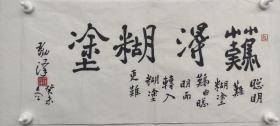 難得糊塗
聰明
難
糊塗
難由聰
明而
轉入
糊塗
更難
癸未